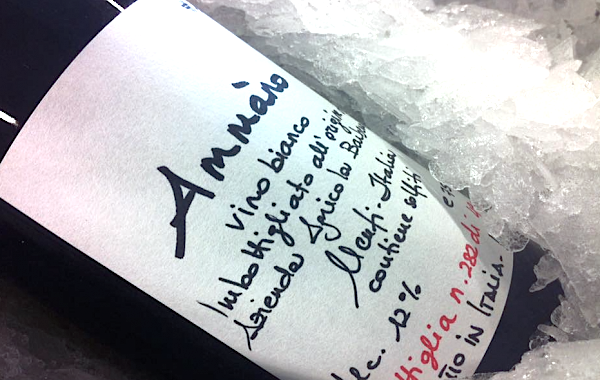 Ammàno
vino bianco
Imbottigliato all'origine
Azienda Agricola
Menfi - Italia
contiene solfiti
alc. 12%
ttiglia n. 282 di
in Italia.